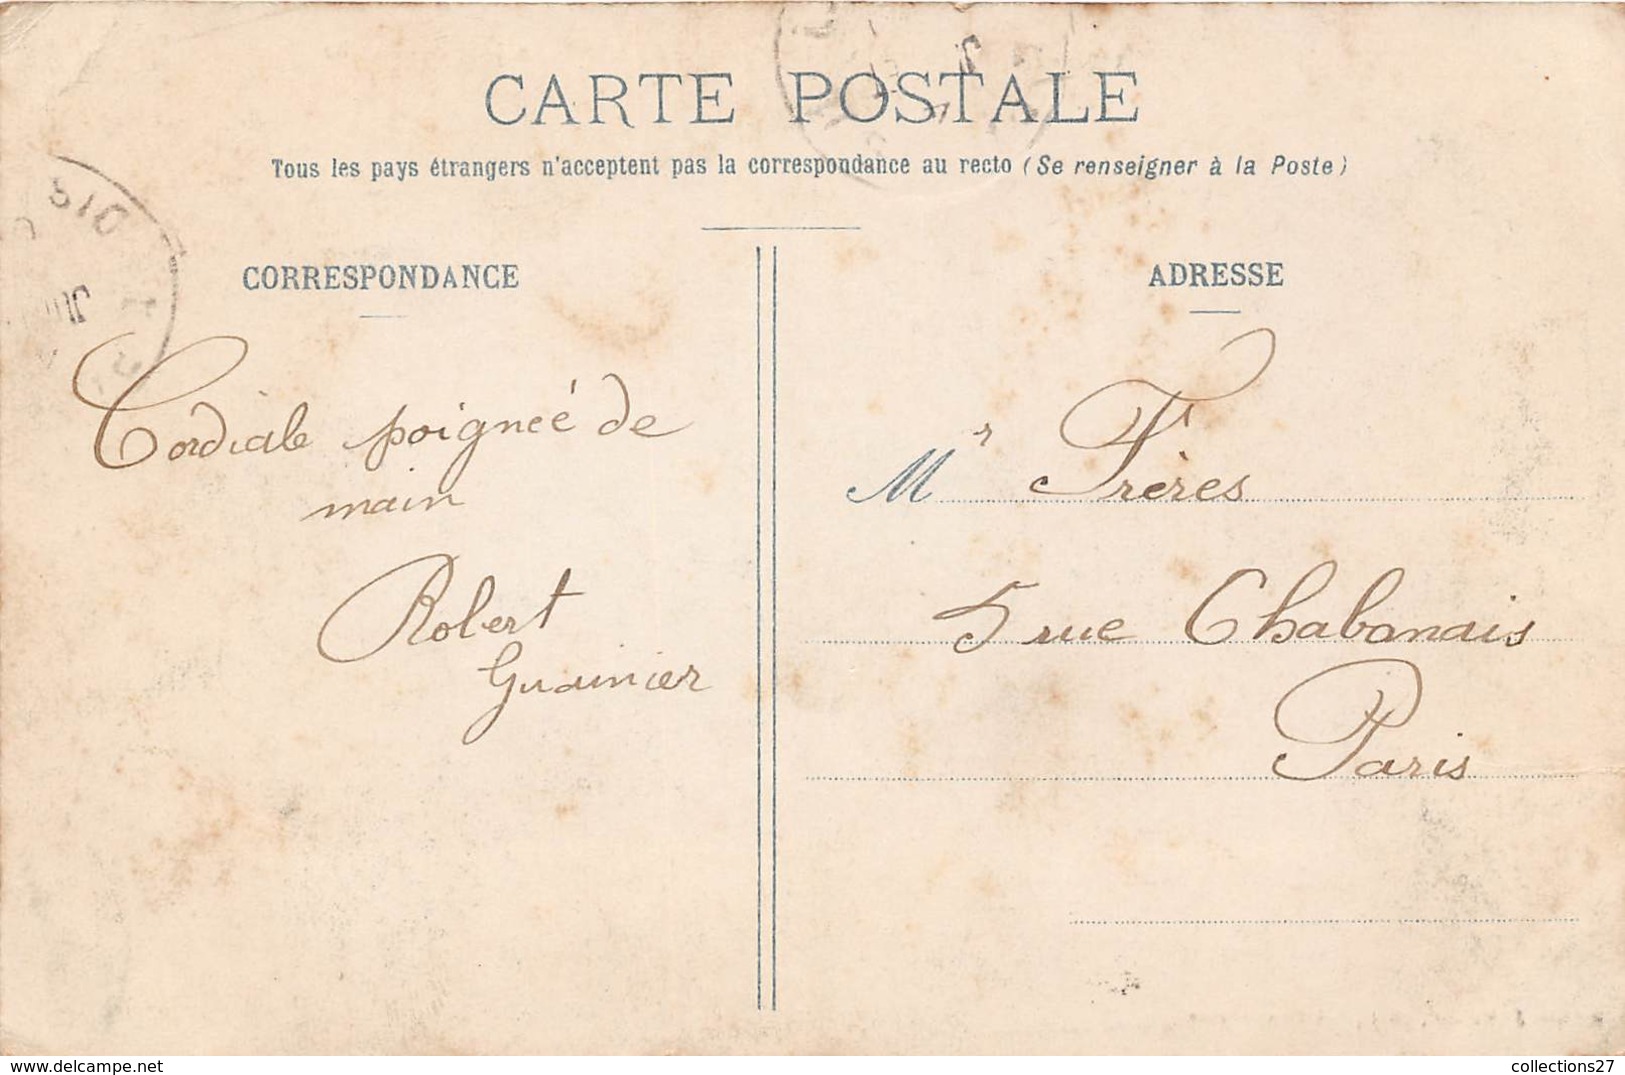 CARTE POSTALE
Tous les pays étrangers n'acceptent pas la correspondance au recto (Se renseigner à la Poste)
CORRESPONDANCE
Cordiale poigneé de
main
Robert
ADRESSE
Mr Frères
5 rue Chabanais
Paris
www.delcampe.net
collections27